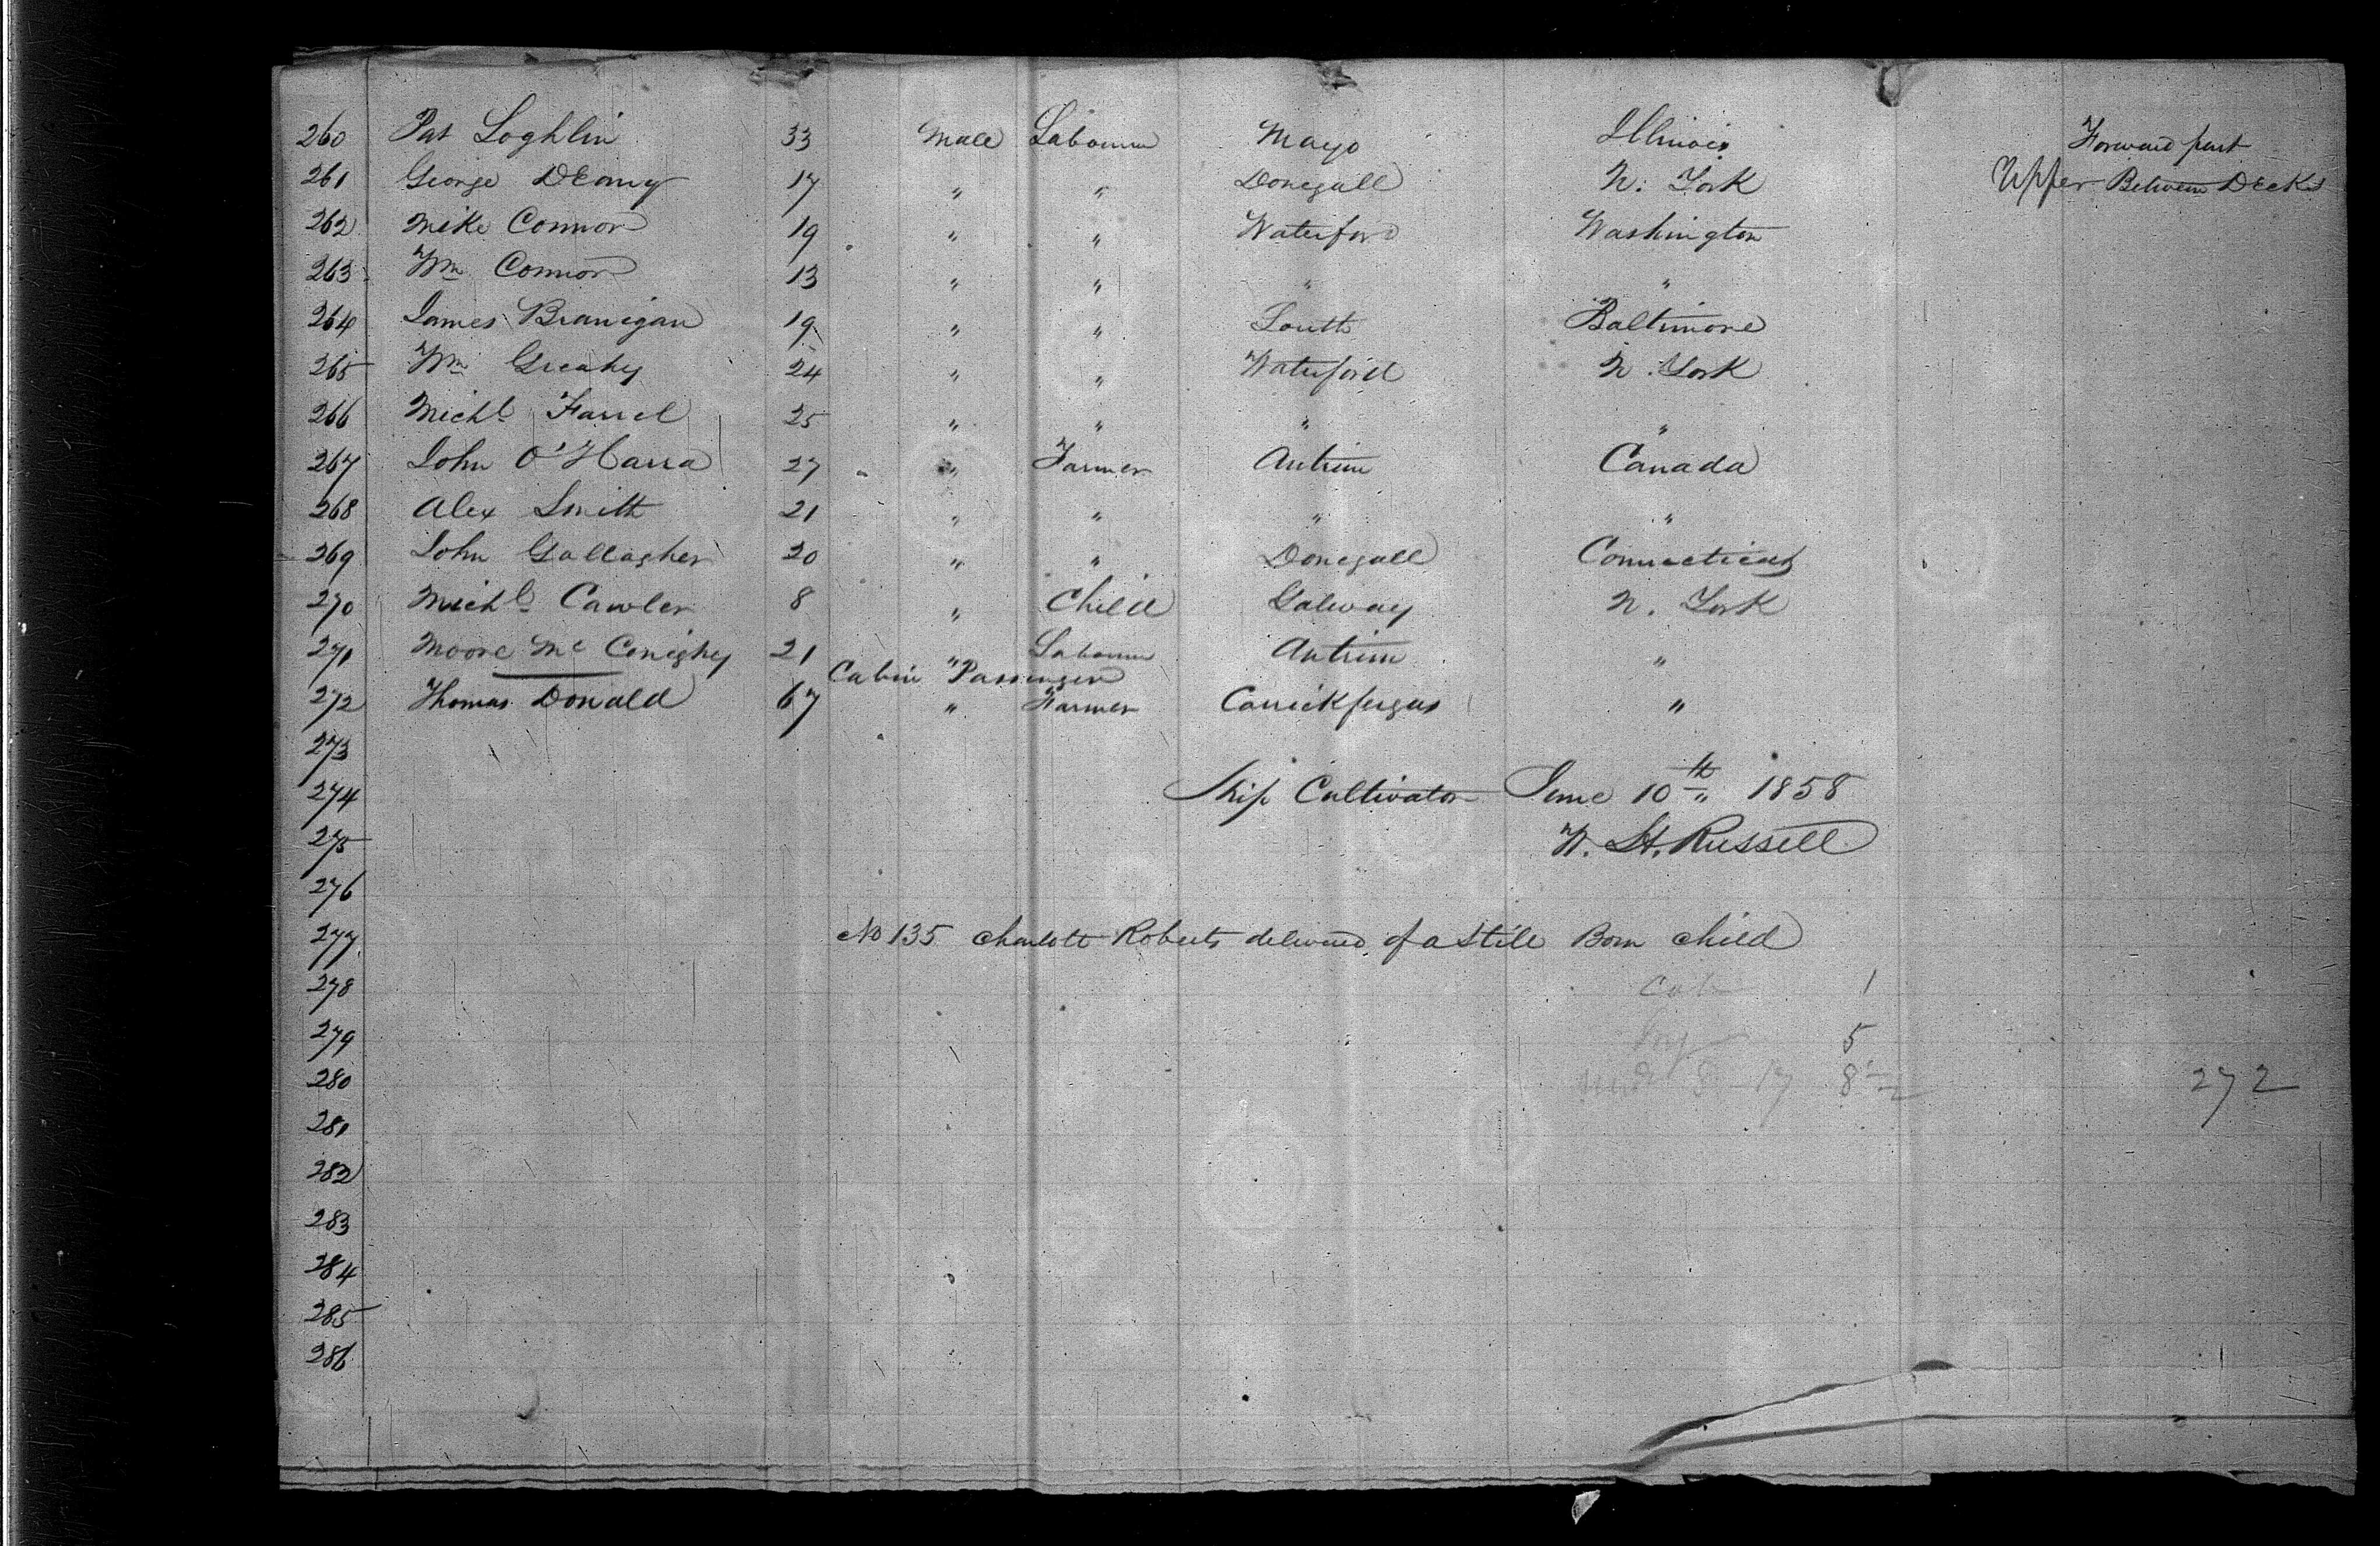 260 Pat Loghlin 33 Male Labourer Mayo Illinois Forward part
261 George Deany 17 " " Donegall N. York Upper Between Decks
262 Mike Connor 19 " " Waterford Washington
263 Wm Connor 13 " " " "
264 James Branigan 19 " " Louth Baltimore
265 Wm Greahy 24 " " Waterford N. York
266 Michl Farrel 25 " " " "
267 John O'Harra 27 " Farmer Antrim Canada
268 Alex Smith 21 " " " "
269 John Gallagher 20 " " Donegall Connecticut
270 Michl Cawler 8 " Child Galway N. York
271 Moore McConighy 21 " Labourer Antrim "
Cabin Passenger
272 Thomas Donald 67 " Farmer Carrickfergus "
273
274 Ship Cultivator June 10th 1858
275 W. St. Russell
276
277 No 135 Charlott Roberts delivered of a Still Born child
278 Cab 1
279 5
280 8 17 8 272
281
282
283
284
285
286